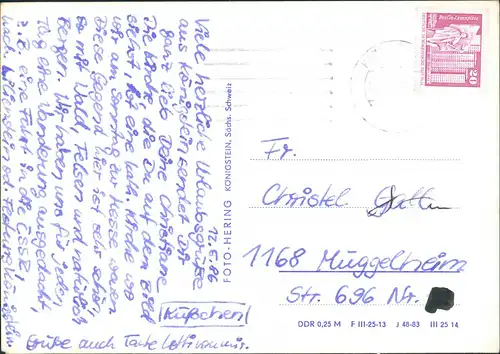 12.5.86
Viele herzliche Urlaubsgrüße
aus Königstein sendet Dir
ganz lieb Deine Christiane.
Die Kirche die Du auf dem Bild
siehst, ist eine kath. Kirche wo
wir am Sonntag zur Messe waren
Diese Gegend hier ist sehr schön,
so mit Wald, Felsen und natürlich
Berge. Wir haben uns für jeden
Tag eine Wanderung ausgedacht,
z.B. eine Fahrt in die ČSSR,
nach Lilienstein od. Festung Königstein.
Küßchen
Grüße auch Tante Lotti von mir.
FOTO-HERING KÖNIGSTEIN, Sächs. Schweiz
20
Fr.
Christel
1168 Müggelheim
Str. 696 Nr.
DDR 0,25 M F III-25-13 J 48-83 III 25 14